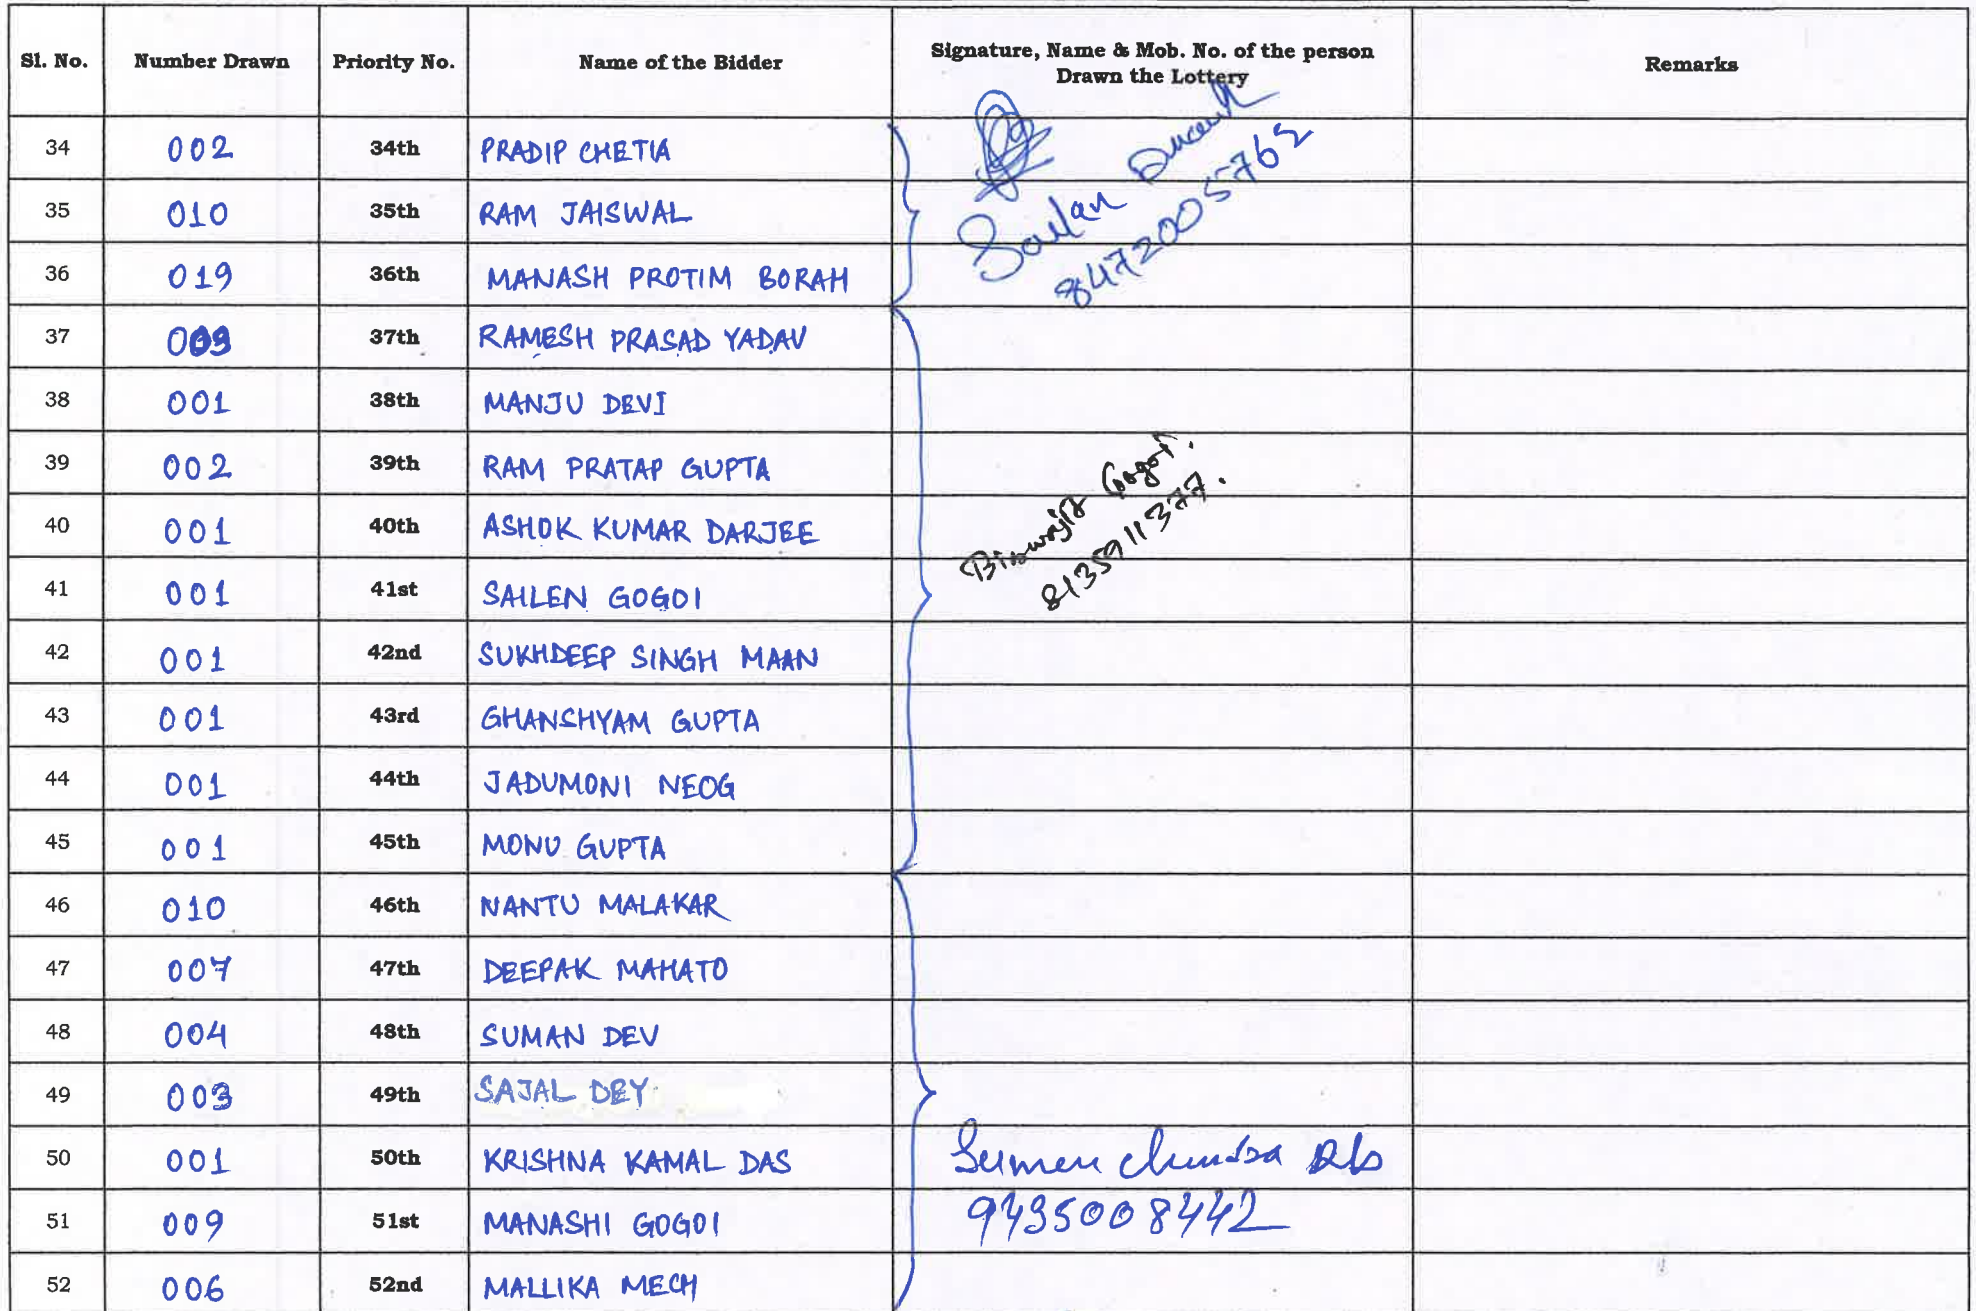 Sl. No. Number Drawn Priority No. Name of the Bidder Signature, Name & Mob. No. of the person Drawn the Lottery Remarks
34 002 34th PRADIP CHETIA
35 010 35th RAM JAISWAL
36 019 36th MANASH PROTIM BORAH
8472005762
37 37th RAMESH PRASAD YADAV
38 001 38th MANJU DEVI
39 002 39th RAM PRATAP GUPTA
40 001 40th ASHOK KUMAR DARJEE
Biswajit Gogoi.
8135911377.
41 001 41st SAILEN GOGOI
42 001 42nd SUKHDEEP SINGH MAAN
43 001 43rd GHANSHYAM GUPTA
44 001 44th JADUMONI NEOG
45 001 45th MONU GUPTA
46 010 46th NANTU MALAKAR
47 007 47th DEEPAK MAHATO
48 004 48th SUMAN DEV
49 003 49th SAJAL DEY
50 001 50th KRISHNA KAMAL DAS
51 009 51st MANASHI GOGOI 9435008442
52 006 52nd MALLIKA MECH